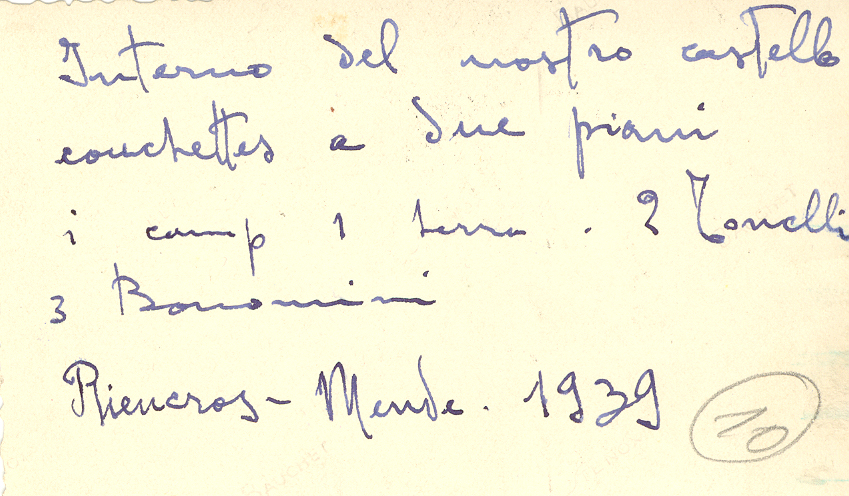 Interno del nostro castello
couchettes a due piani
i camp 1 terra . 2 Tonelli
3 Bonomini
Riencros - Mende. 1939
10